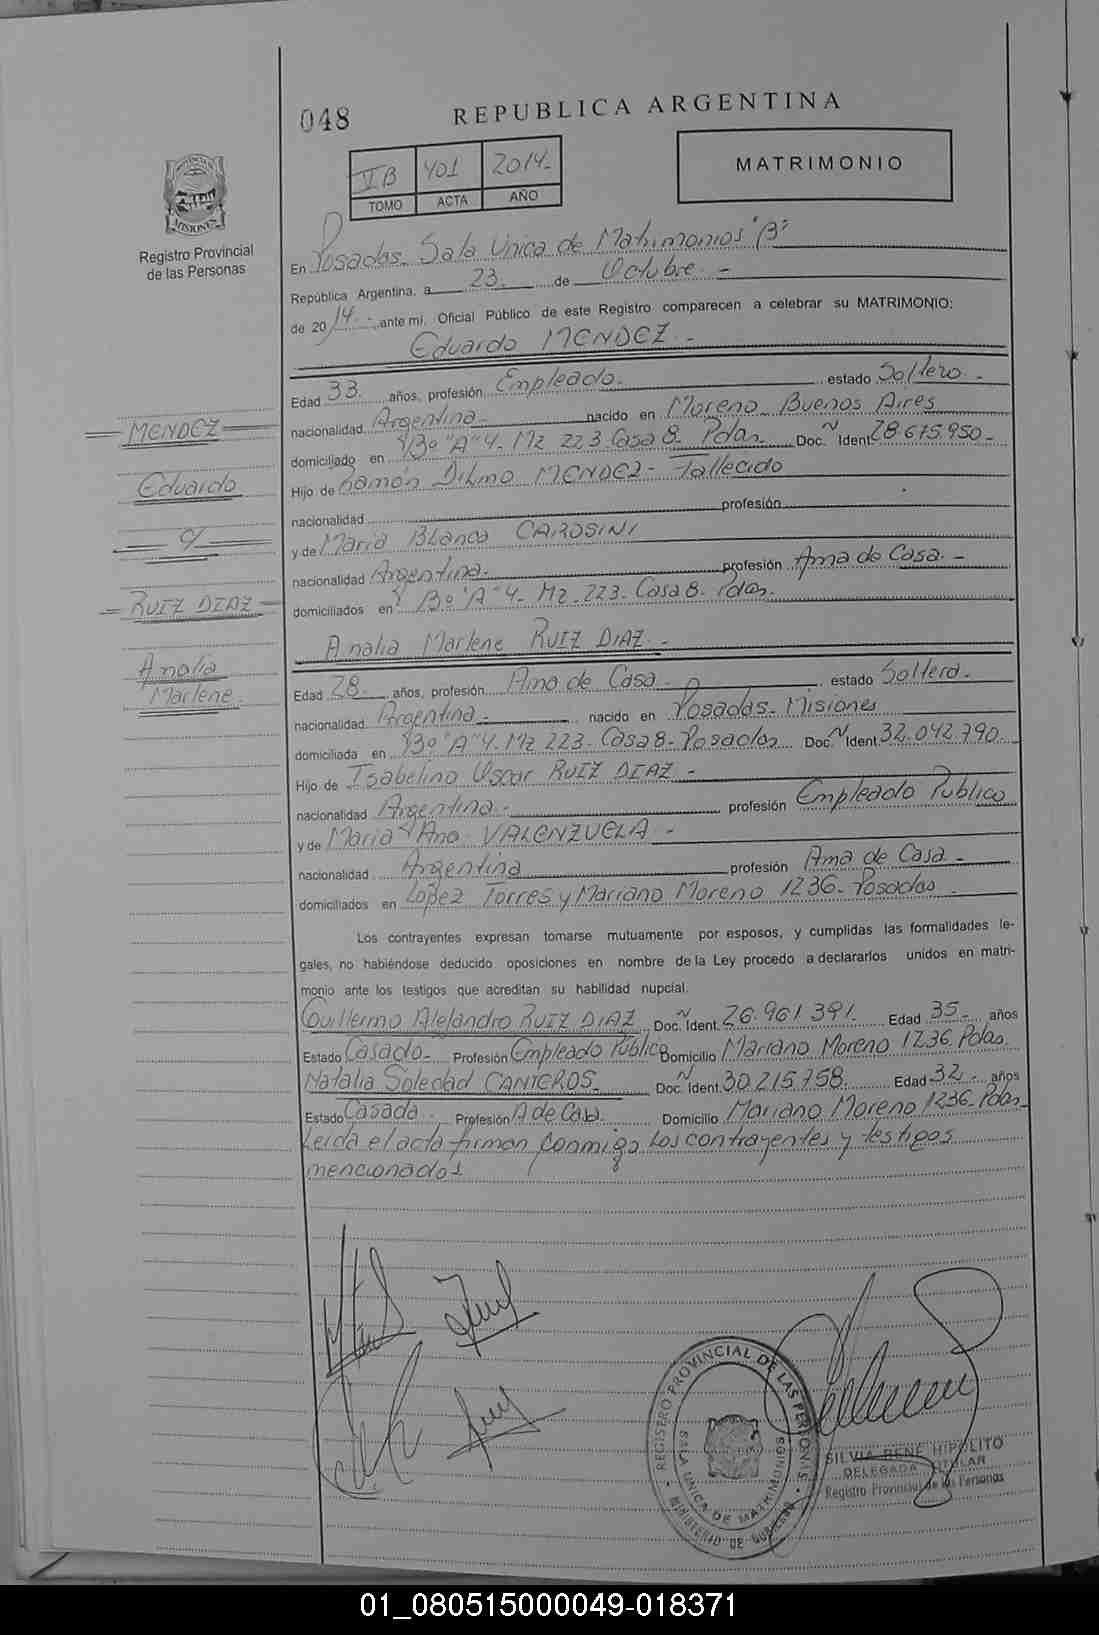 048
REPUBLICA ARGENTINA
VB 401 2014-
TOMO ACTA AÑO
MATRIMONIO
PROVINCIA DE
MISIONES
Registro Provincial
de las Personas
En Posadas. Sala Unica de Matrimonios "B"
República Argentina, a 23. de Octubre. -
de 2014 - ante mi, Oficial Público de este Registro comparecen a celebrar su MATRIMONIO:
Eduardo MENDEZ -
Edad 33. años, profesión Empleado. estado Soltero -
nacionalidad Argentina - nacido en Moreno Buenos Aires
domiciliado en Bº "A" 4- Mz 223 Casa 8- Pdas. Doc. Ident. 28.675.950-
Hijo de Ramon Dilmo MENDEZ - Fallecido
nacionalidad profesión
y de Maria Blanca CAROSINI
nacionalidad Argentina- profesión Ama de Casa. -
domiciliados en Bº "A" 4- Mz. 223- Casa 8- Pdas.
Analia Marlene RUIZ DIAZ -
Edad 28. años, profesión Ama de Casa - estado Soltera -
nacionalidad Argentina - nacido en Posadas- Misiones
domiciliada en Bº "A" 4- Mz 223- Casa 8- Posadas Doc. N Ident. 32.042.790-
Hijo de Isabelino Oscar RUIZ DIAZ -
nacionalidad Argentina - profesión Empleado Publico
y de Maria Ana VALENZUELA -
nacionalidad Argentina profesión Ama de Casa -
domiciliados en Lopez Torres y Mariano Moreno 1236- Posadas -
Los contrayentes expresan tomarse mutuamente por esposos, y cumplidas las formalidades le-
gales, no habiéndose deducido oposiciones en nombre de la Ley procedo a declararlos unidos en matri-
monio ante los testigos que acreditan su habilidad nupcial.
Guillermo Alejandro RUIZ DIAZ Doc. N Ident. 26.961.391. Edad 35- años
Estado Casado- Profesión Empleado Publico Domicilio Mariano Moreno 1236 Pdas.
Natalia Soledad CANTEROS- Doc. N Ident. 30.215.758. Edad 32- años
Estado Casada. Profesión A de Casa. Domicilio Mariano Moreno 1236- Pdas-
Leida el acta firman conmigo los contrayentes y testigos
mencionados
MENDEZ
Eduardo
c/
RUIZ DIAZ
Analia
Marlene.
REGISTRO PROVINCIAL DE LAS PERSONAS
SALA UNICA DE MATRIMONIOS
MINISTERIO DE GOBIERNO
SILVIA RENE HIPOLITO
DELEGADA TITULAR
Registro Provincial de las Personas
01_080515000049-018371